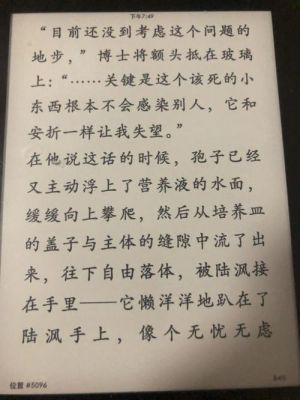 下午7:49
“目前还没到考虑这个问题的
地步，”博士将额头抵在玻璃
上：“……关键是这个该死的小
东西根本不会感染别人，它和
安折一样让我失望。”
在他说这话的时候，孢子已经
又主动浮上了营养液的水面，
缓缓向上攀爬，然后从培养皿
的盖子与主体的缝隙中流了出
来，往下自由落体，被陆沨接
在手里——它懒洋洋地趴在了
陆沨手上，像个无忧无虑
位置 #5096